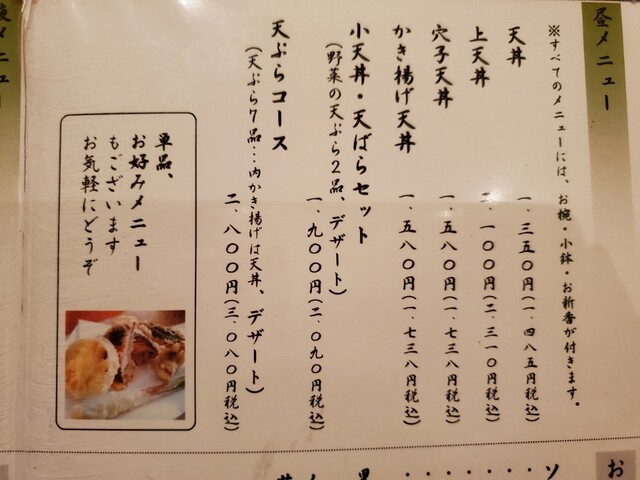 昼メニュー
※すべてのメニューには、お椀・小鉢・お新香が付きます。
天丼 一、三五〇円(一、四八五円税込)
上天丼 二、一〇〇円(二、三一〇円税込)
穴子天丼 一、五八〇円(一、七三八円税込)
かき揚げ天丼 一、五八〇円(一、七三八円税込)
小天丼・天ばらセット
(野菜の天ぷら2品、デザート) 一、九〇〇円(二、〇九〇円税込)
天ぷらコース
(天ぷら7品…内かき揚げは天丼、デザート) 二、八〇〇円(三、〇八〇円税込)
単品、
お好みメニュー
もございます
お気軽にどうぞ
メニュー
お
ソ